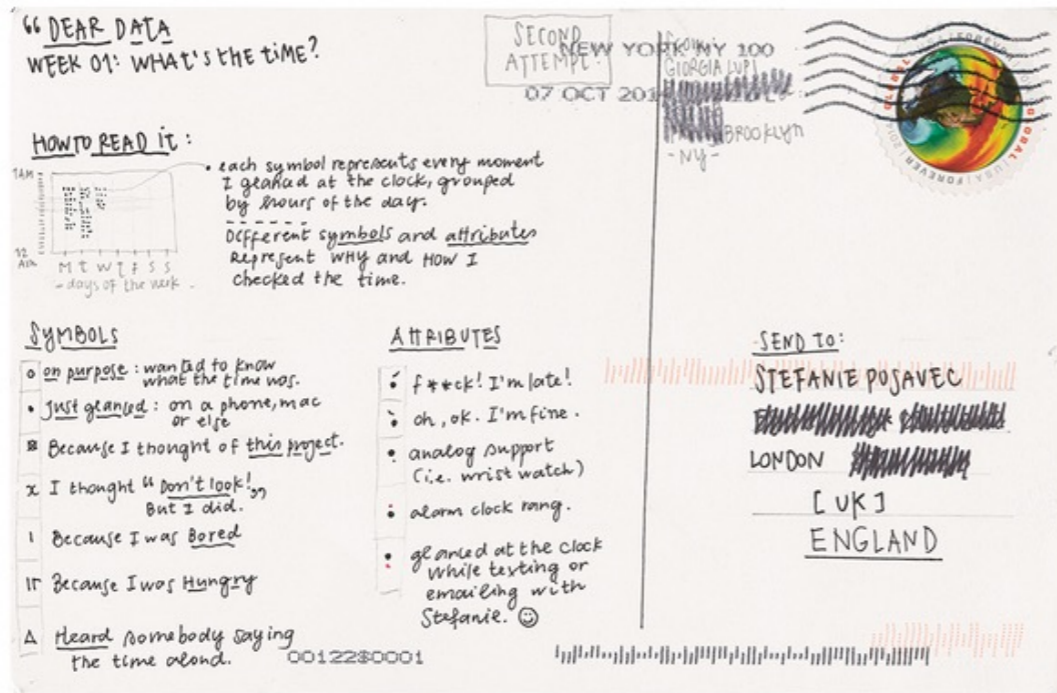 “ DEAR DATA
WEEK 01: WHAT'S the tiME?
SECOND
ATTEMPT!
NEW YORK NY 100
07 OCT 201
From:
GIORGIA LUPI
BROOKLYN
- NY -
GLOBAL | USA | FOREVER 2014
HOW TO READ it :
1AM
12
AM
M T W T F S S
- days of the week .
• each symbol represents every moment
I glanced at the clock, grouped
by hours of the day.
Different symbols and attributes
Represent WHY and HOW I
checked the time.
SYMBOLS
on purpose : wanted to know
what the time was.
Just glanced : on a phone, mac
or else
Because I thought of this project.
x I thought “ Don't look! „
But I did.
I Because I was Bored
Because I was Hungry
Δ Heard somebody saying
the time aloud.
ATTRIBUTES
f**ck! I'm late!
oh, ok. I'm fine.
analog support
(i.e. wrist watch)
alarm clock rang.
glanced at the clock
while texting or
emailing with
Stefanie. ☺
SEND TO:
STEFANIE POSAVEC
LONDON
[ UK ]
ENGLAND
00122$0001